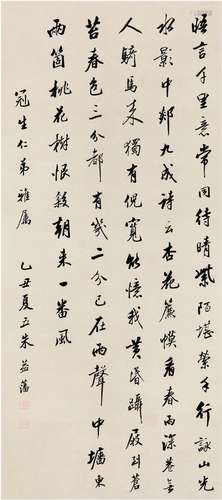 晤言千里意常同待晴紫陌堪攜手行詠山光
水影中郯九成詩云杏花簾幙看春雨深巷無
人騎馬來獨有倪寬能憶我黃昏躡屐到蒼
苔春色三分都有幾二分已在雨聲中墻東
兩箇桃花樹恨殺朝來一番風
冠生仁弟雅屬
乙丑夏五朱益藩